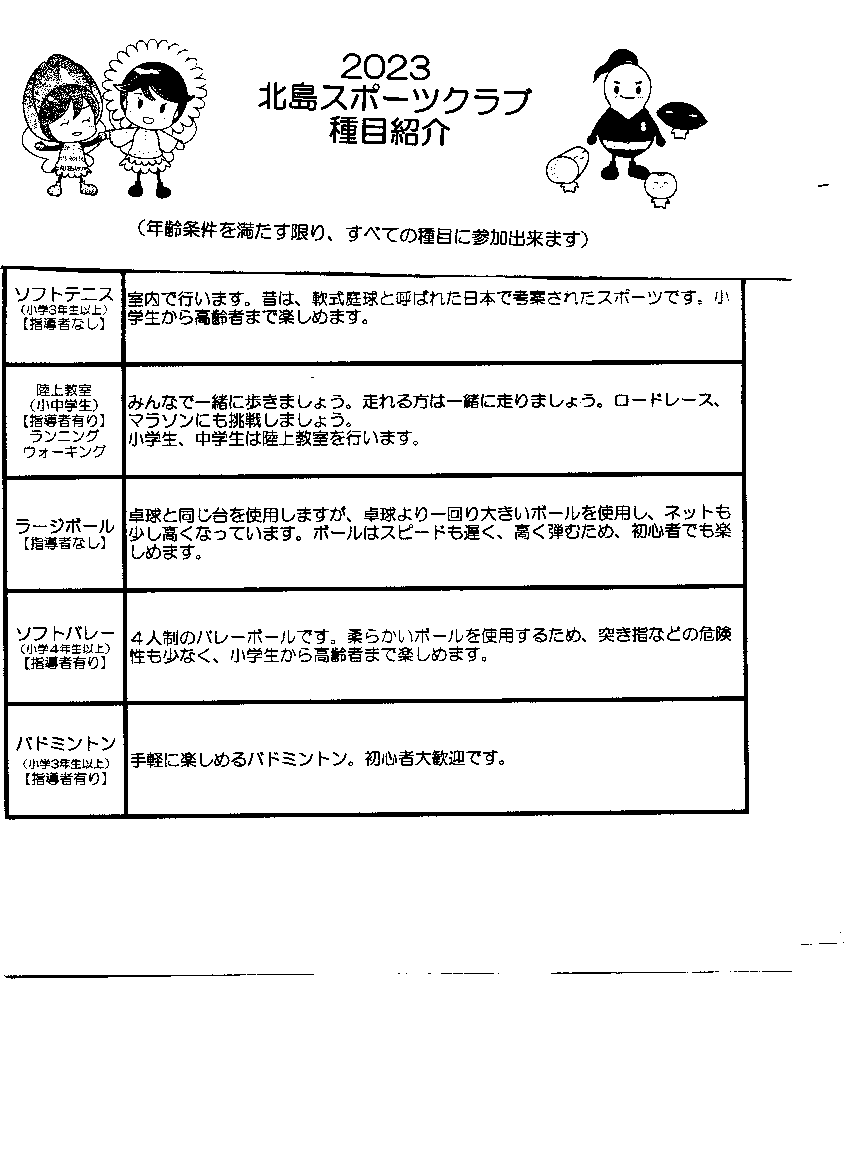 2023
北島スポーツクラブ
種目紹介
（年齢条件を満たす限り、すべての種目に参加出来ます）
ソフトテニス
（小学3年生以上）
【指導者なし】
室内で行います。昔は、軟式庭球と呼ばれた日本で考案されたスポーツです。小
学生から高齢者まで楽しめます。
陸上教室
（小中学生）
【指導者有り】
ランニング
ウォーキング
みんなで一緒に歩きましょう。走れる方は一緒に走りましょう。ロードレース、
マラソンにも挑戦しましょう。
小学生、中学生は陸上教室を行います。
ラージボール
【指導者なし】
卓球と同じ台を使用しますが、卓球より一回り大きいボールを使用し、ネットも
少し高くなっています。ボールはスピードも遅く、高く弾むため、初心者でも楽
しめます。
ソフトバレー
（小学4年生以上）
【指導者有り】
４人制のバレーボールです。柔らかいボールを使用するため、突き指などの危険
性も少なく、小学生から高齢者まで楽しめます。
バドミントン
（小学3年生以上）
【指導者有り】
手軽に楽しめるバドミントン。初心者大歓迎です。